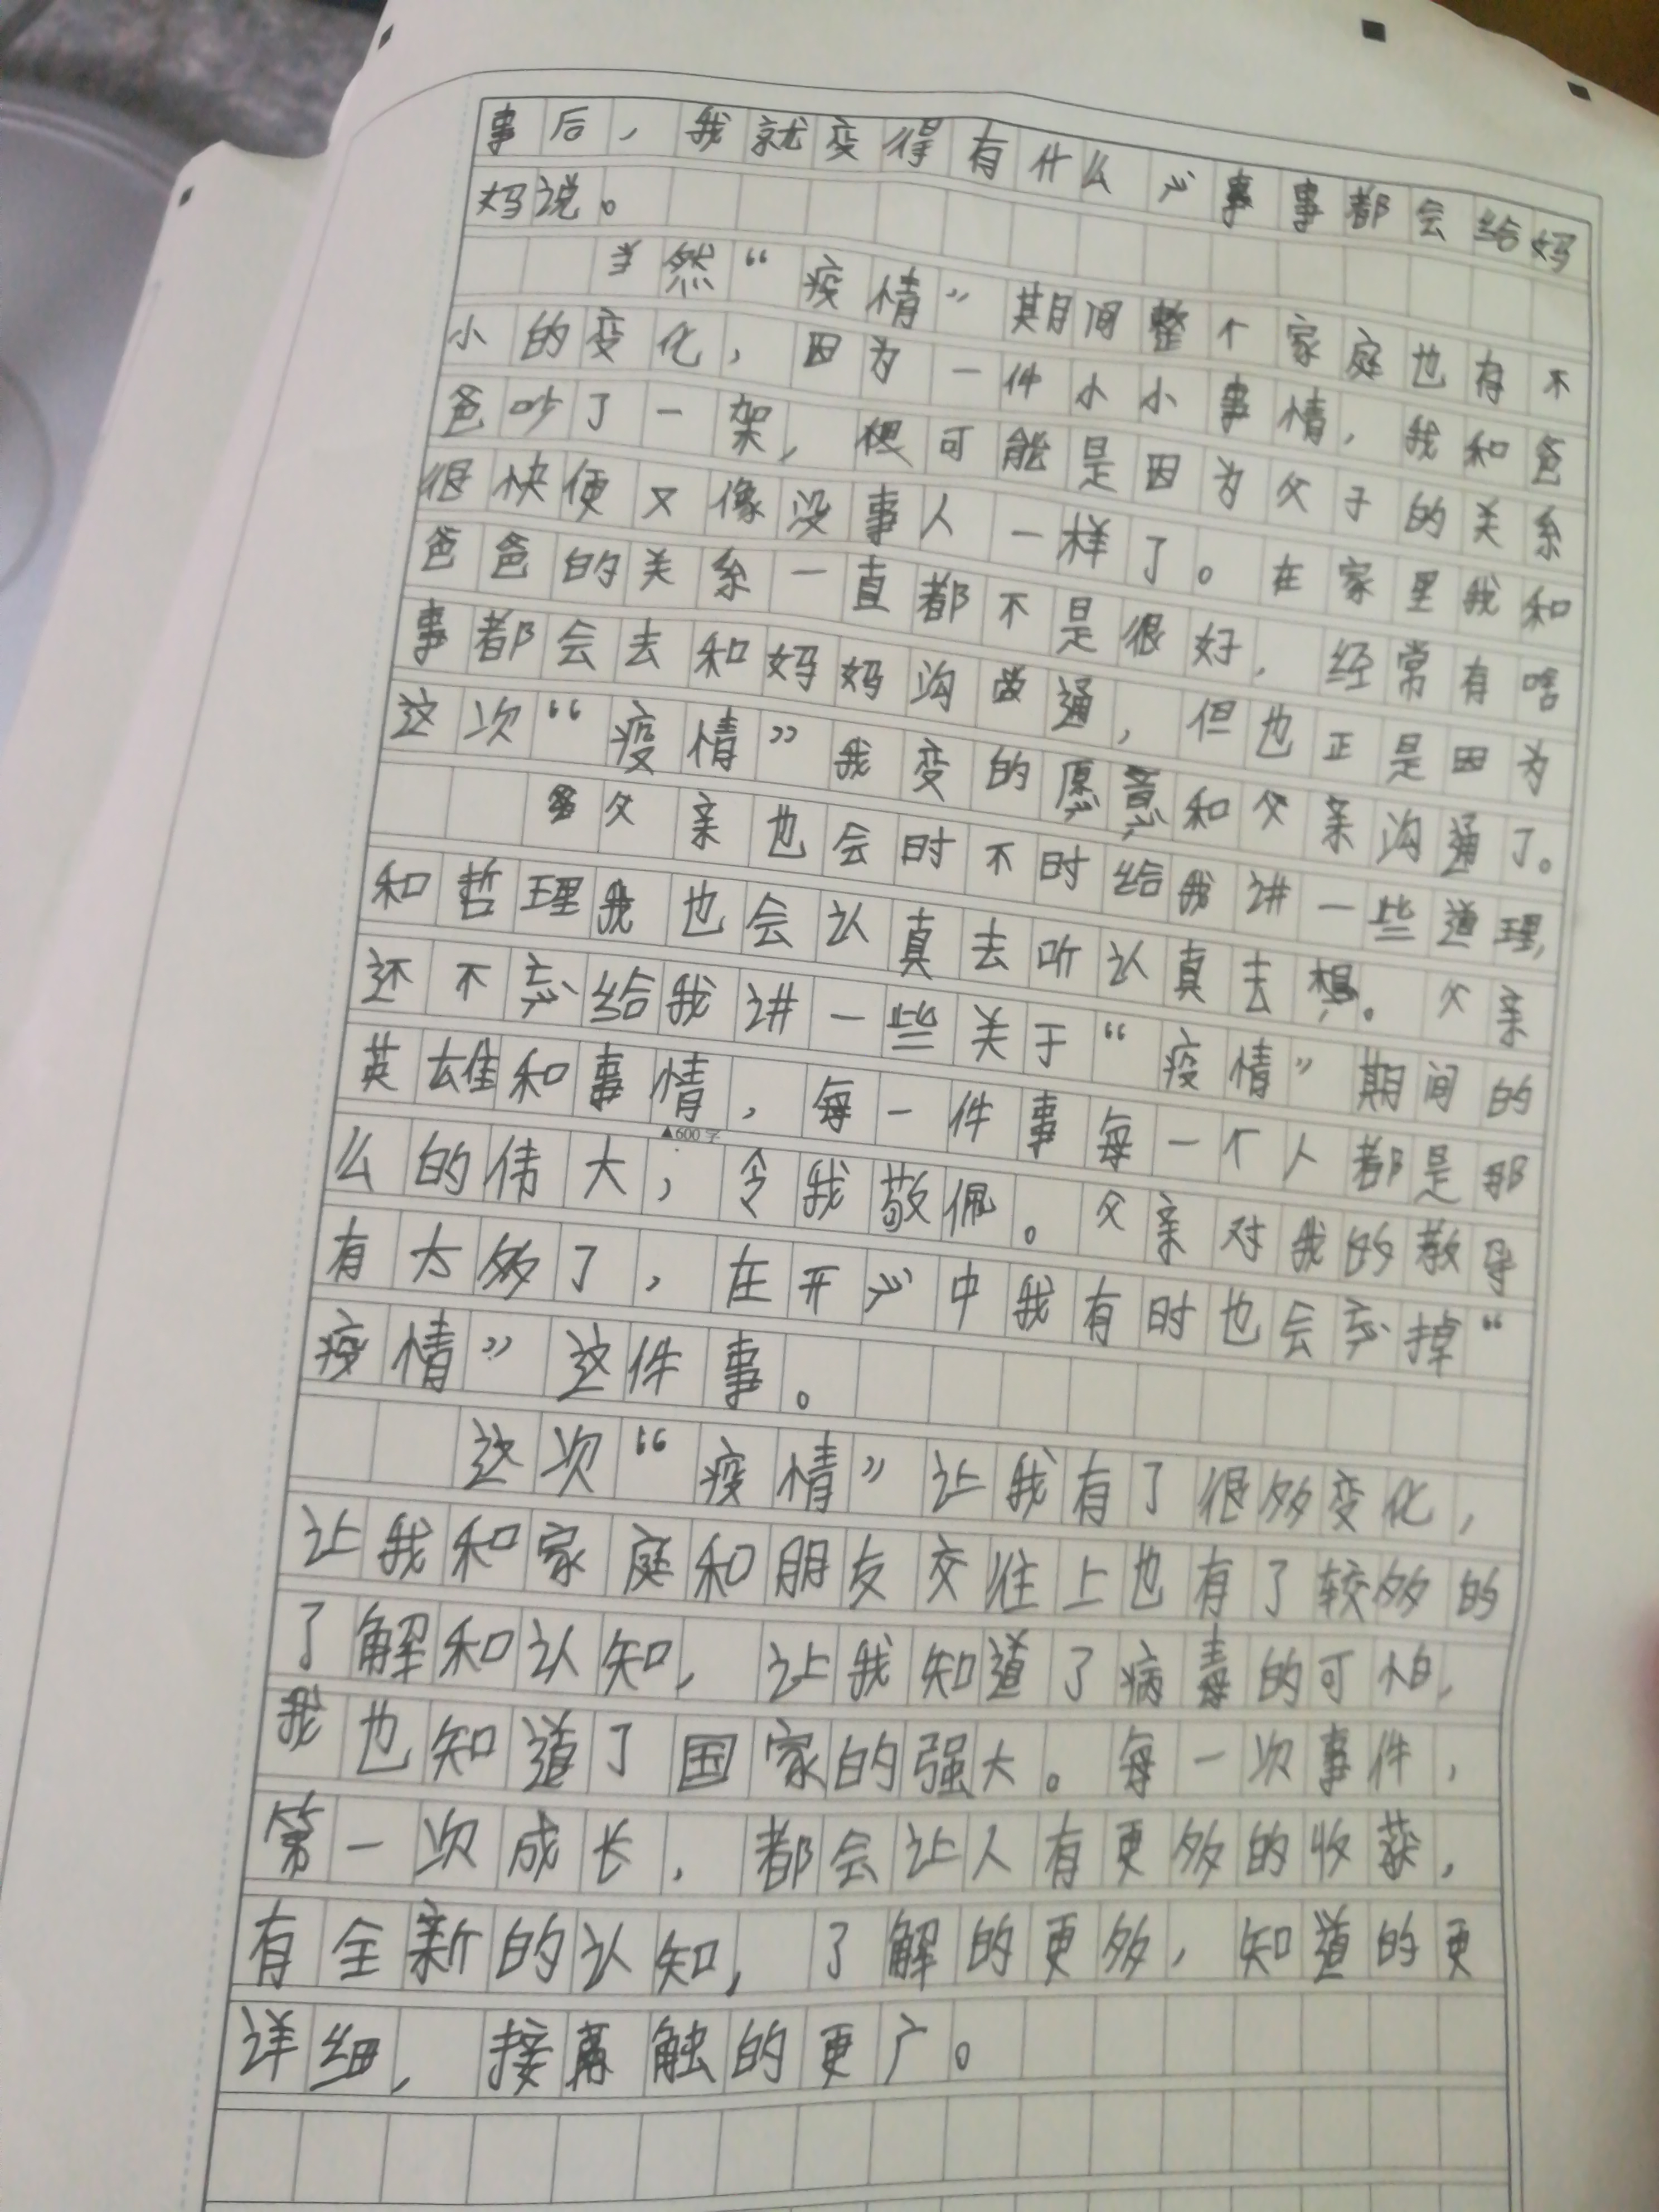 事后，我就变得有什么心事事都会给妈
妈说。
当然“疫情”期间整个家庭也有不
小的变化，因为一件小小事情，我和爸
爸吵了一架，但可能是因为父子的关系
很快便又像没事人一样了。在家里我和
爸爸的关系一直都不是很好，经常有啥
事都会去和妈妈沟通，但也正是因为
这次“疫情”我变的愿意和父亲沟通了。
父亲也会时不时给我讲一些道理，
和哲理我也会认真去听认真去想。父亲
还不忘给我讲一些关于“疫情”期间的
英雄和事情，每一件事每一个人都是那
▲600字
么的伟大，令我敬佩。父亲对我的教导
有太多了，在开心中我有时也会忘掉“
疫情”这件事。
这次“疫情”让我有了很多变化，
让我和家庭和朋友交往上也有了较多的
了解和认知，让我知道了病毒的可怕，
我也知道了国家的强大。每一次事件，
第一次成长，都会让人有更多的收获，
有全新的认知，了解的更多，知道的更
详细，接触的更广。